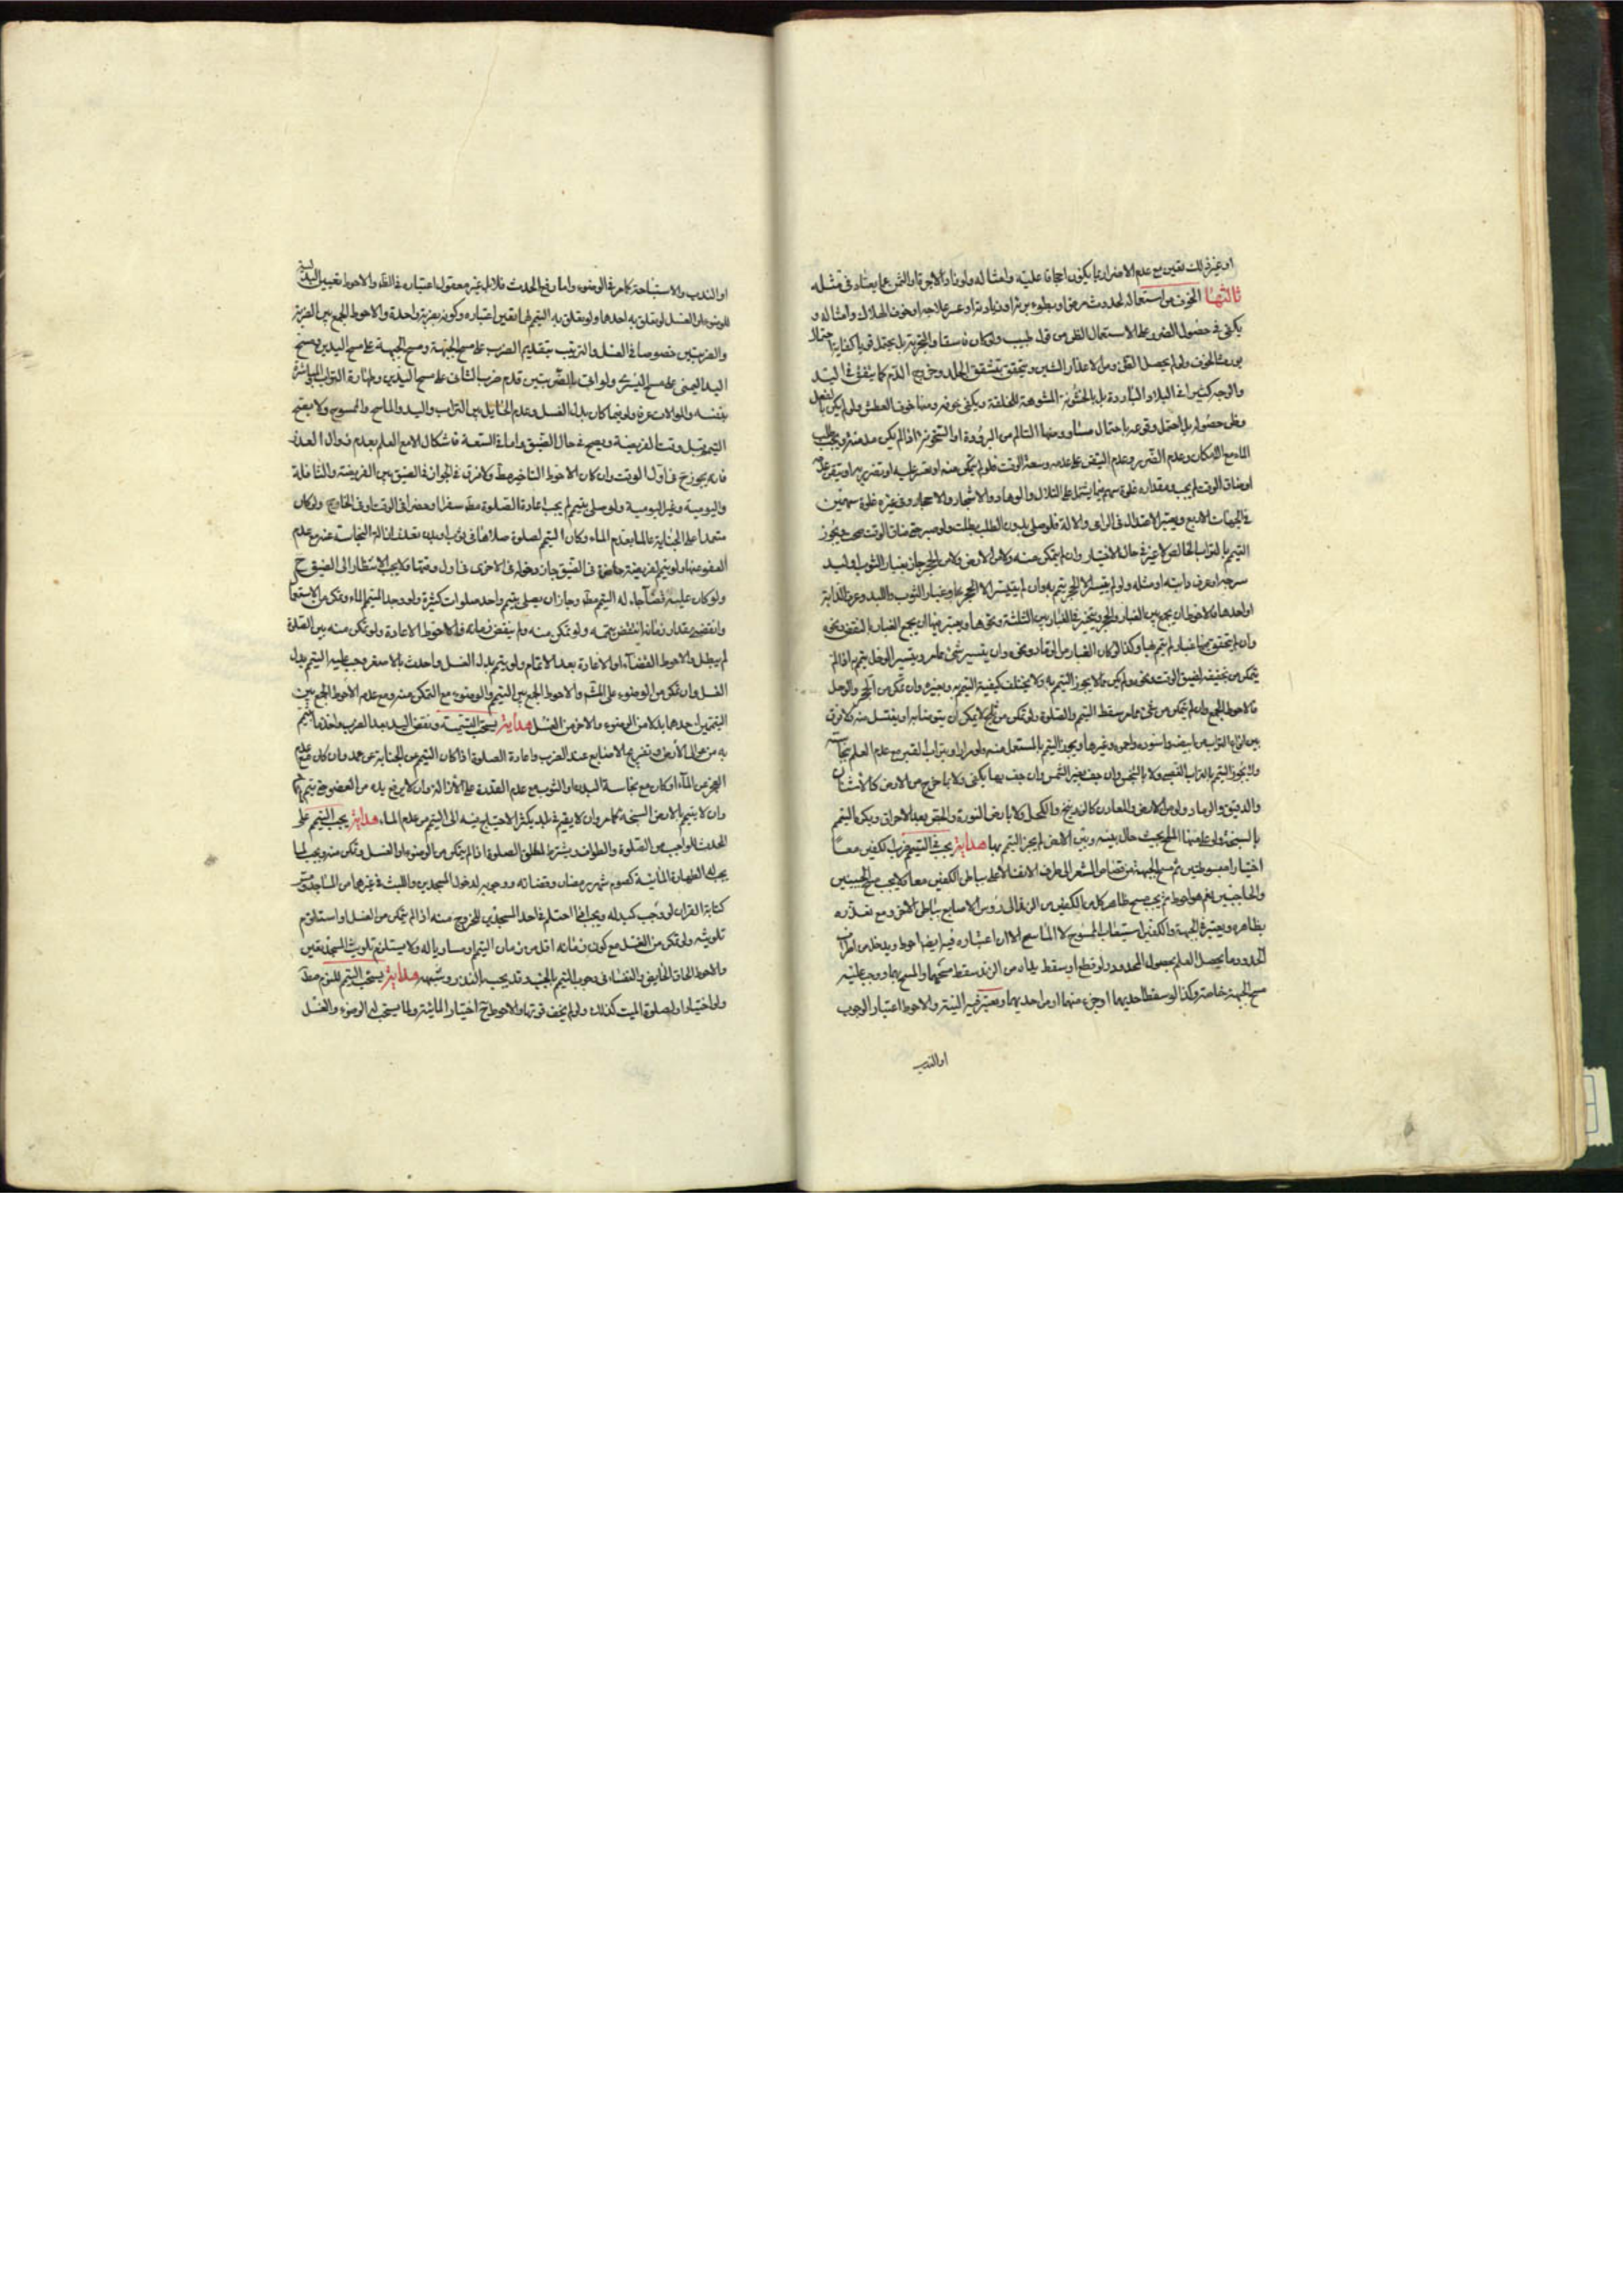 او غير ذلك تعين مع عدم الاضرار بما يكون اجحافا عليه وامثاله ولو زاد الاجرة او الثمن عما يعتاد في مثله
ثالثها الخوف من استعماله لحدوث مرض او بطوء برء او زيادته او عسر علاجه او خوف الهلاك وامثاله و
يكفي في حصول الضرر على الاستعمال الظن من قول طبيب ولو كان فاسقا والتجربة بل يحتمل قويا كفاية احتمال
الخوف ولو لم يحصل الظن ومن الاعذار الشين ويتحقق بتشقق الجلد وخروج الدم كما يتفق في اليد
والوجه كثيرا في البلاد الباردة بل بالخشونة المشوهة للخلقة ويكفي خوفه ومنها خوف العطش ولو لم يكن بالفعل
وظن حصوله بل احتمل وقوعه باحتمال مساو ومنها التالم من البرودة او السخونة اذا لم يكن مامنه ويجب طلب
الماء مع الامكان وعدم الضرر وعدم اليقين على عدمه وسعة الوقت فلو لم يتمكن منه او تعسر عليه او تضرر به او تيقن عدمه
او ضاق الوقت لم يجب ومقداره غلوة سهم فيما يشتمل على التلال والوهاد والاشجار والاحجار وفي غيره غلوة سهمين
في الجهات الاربع ويعتبر الاعتدال في الرامي والالة فلو صلى بدون الطلب بطلت ولو صبر حتى ضاق الوقت صح ويجوز
التيمم بالتراب الخالص لا غير في حال الاختيار وان لم يتمكن منه ولا من الارض ولا من الحجر جاز بغبار الثوب او لبد
سرجه او عرف دابته او مثله ولو لم يتيسر الا الحجر يتيمم به وان لم يتيسر الا الحجر وغبار الثوب واللبد وعرف الدابة
او احدها فالاحوط ان يجمع بين الغبار والحجر ويتخير في الغبار بين الثلثة ونحوها ويعتبر فيها ان يجمع الغبار بالنفض ونحوه
وان لم يتحقق فيها غبار لم يتيمم بها وكذا لو كان الغبار من الرماد ونحوه وان يتيسر شيء مما مر وتيسر الوحل يتيمم به اذا لم
يتمكن من تجفيفه لضيق الوقت ونحوه ولم يكن مما لا يجوز التيمم به ولا يختلف كيفية التيمم به وبغيره وان تمكن من الحجر والوحل
فالاحوط الجمع وان لم يتمكن من شيء مما مر سقط التيمم والصلوة ولو تمكن من ثلج لا يمكن ان يتوضا به او يغتسل منه ولا فرق
بين انواع التراب من ابيض واسود واحمر وغيرها ويجوز التيمم بالمستعمل منه ولو مرارا وبتراب القبر مع عدم العلم بنجاسته
ولا يجوز التيمم بالتراب الغصبي ولا بالنجس وان جف بغير الشمس وان جف بها يكفي ولا بما خرج من الارض كالاشنان
والدقيق والرماد ولو من الارض والمعادن كالزرنيخ والكحل ولا بارض النورة والجص بعد الاحراق ويكره التيمم
بالسبخة ولو علاهها الملح بحيث حال بينه وبين الارض لم يجز التيمم بها هداية يجب في التيمم ضرب الكفين معا
اختيارا مبسوطتين ثم مسح الجبهة من قصاص الشعر الى طرف الانف الاعلى بباطن الكفين معا ولا يجب مسح الجبينين
والحاجبين نعم هو احوط ثم يجب مسح ظاهر كل من الكفين من الزند الى رؤس الاصابع بباطن الاخرى ومع تعذره
بظاهره ويعتبر في الجبهة والكفين استيعاب الممسوح لا الماسح الا ان اعتباره فيه ايضا احوط ويدخل من اطراف
الحدود ما يحصل العلم بحصول المحدود ولو قطع او سقط يداه من الزند سقط مسحهما والمسح بهما ووجب عليه
مسح الجبهة خاصة وكذا لو سقط احديهما او جزء منهما او من احديهما ويعتبر فيه النية والاحوط اعتبار الوجوب
او الندب
او الندب والاستباحة كما مر في الوضوء واما رفع الحدث فلا بل غير معقول اعتباره في الظاهر والاحوط تعيين البدلية
للوضوء او الغسل لو تعلق به احدها ولو تعلق به التيمم لهما تعين اعتباره وكونه بضربة واحدة والاحوط الجمع بين الضربة
والضربتين خصوصا في الغسل والترتيب بتقديم الضرب على مسح الجبهة ومسح الجبهة على مسح اليدين ومسح
اليد اليمنى على مسح اليسرى ولو اتى بالضربتين قدم ضرب الثاني على مسح اليدين وطهارة التراب المباشرة
بنفسه والموالات عرفا ولو فيما كان بدل الغسل وعدم الحايل بين التراب واليد والماسح والممسوح ولا يصح
التيمم قبل وقت الفريضة ويصح في حال الضيق واما في السعة فاشكال الا مع العلم بعدم زوال العذر
فانه يجوز ح في اول الوقت وان كان الاحوط التاخير مط ولا فرق في الجواز في الضيق بين الفريضة والنافلة
واليومية وغير اليومية ولو صلى بتيمم لم يجب اعادة الصلوة مط سفرا وحضرا في الوقت او في الخارج ولو كان
متعمدا على الجنابة عالما بعدم الماء وكان التيمم لصلوة صلاها في ثوب او بدن تعذر ازالة النجاسة عنه مع عدم
العفو عنها ولو تيمم لفريضة حاضرة في الضيق جاز دخوله في الاخرى في اول وقتها فلا يجب الانتظار الى الضيق ح
ولو كان عليه قضاء جاء له التيمم مط وجاز ان يصلي بتيمم واحد صلوات كثيرة ولو وجد المتيمم الماء وتمكن من الاستعمال
وانقضى مقدار زمانه انتقض تيممه ولو تمكن منه ولم ينقض زمانه فالاحوط الاعادة ولو تمكن منه بين الصلوة
لم يبطل والاحوط القضاء او الاعادة بعد الاتمام ولو تيمم بدل الغسل واحدث بالاصغر وجب عليه التيمم بدل
الغسل وان تمكن من الوضوء على المشهور والاحوط الجمع بين التيمم والوضوء مع التمكن منه ومع عدمه الاحوط الجمع بين
التيممين احدهما بدلا من الوضوء والاخر من الغسل هداية يستحب التسمية ونفض اليد بعد الضرب واخذ ما يتيمم
به من عوالي الارض وتفريج الاصابع عند الضرب واعادة الصلوة اذا كان التيمم من الجنابة عن عمد وان كان مع عدم
العجز من الماء او كان مع نجاسة البدن او الثوب مع عدم القدرة على الازالة وان لا يرفع يده من العضو حتى يتيمم
وان لا يتيمم بالارض السبخة كما مر وان لا يقيم في بلد يكثر الاحتياج فيه الى التيمم من عدم الماء هداية يجب التيمم على
المحدث للواجب من الصلوة والطواف ويشترط لمطلق الصلوة اذا لم يتمكن من الوضوء او الغسل وتمكن منه ويجب لما
يجب له الطهارة المائية كصوم شهر رمضان وقضائه ووجوبه لدخول المسجدين واللبث في غيرهما من المساجد ومس
كتابة القران لو وجب كبدله ويجب اذا احتلم في احد المسجدين للخروج منه اذا لم يتمكن من الغسل او استلزم
تلويثه ولو تمكن من الغسل مع كون زمانه اقل من زمان التيمم او مساويا له ولا يستلزم تلويث المسجد تعين
والاحوط الحاق الحايض والنفساء في وجوب التيمم بالجنب وقد يجب بالنذر وشبهه هداية يستحب التيمم للنوم مط
ولو اختيارا ولصلوة الميت كذلك ولو لم يخف فوتها والاحوط ح اختيار المائية ولما يستحب له الوضوء والغسل